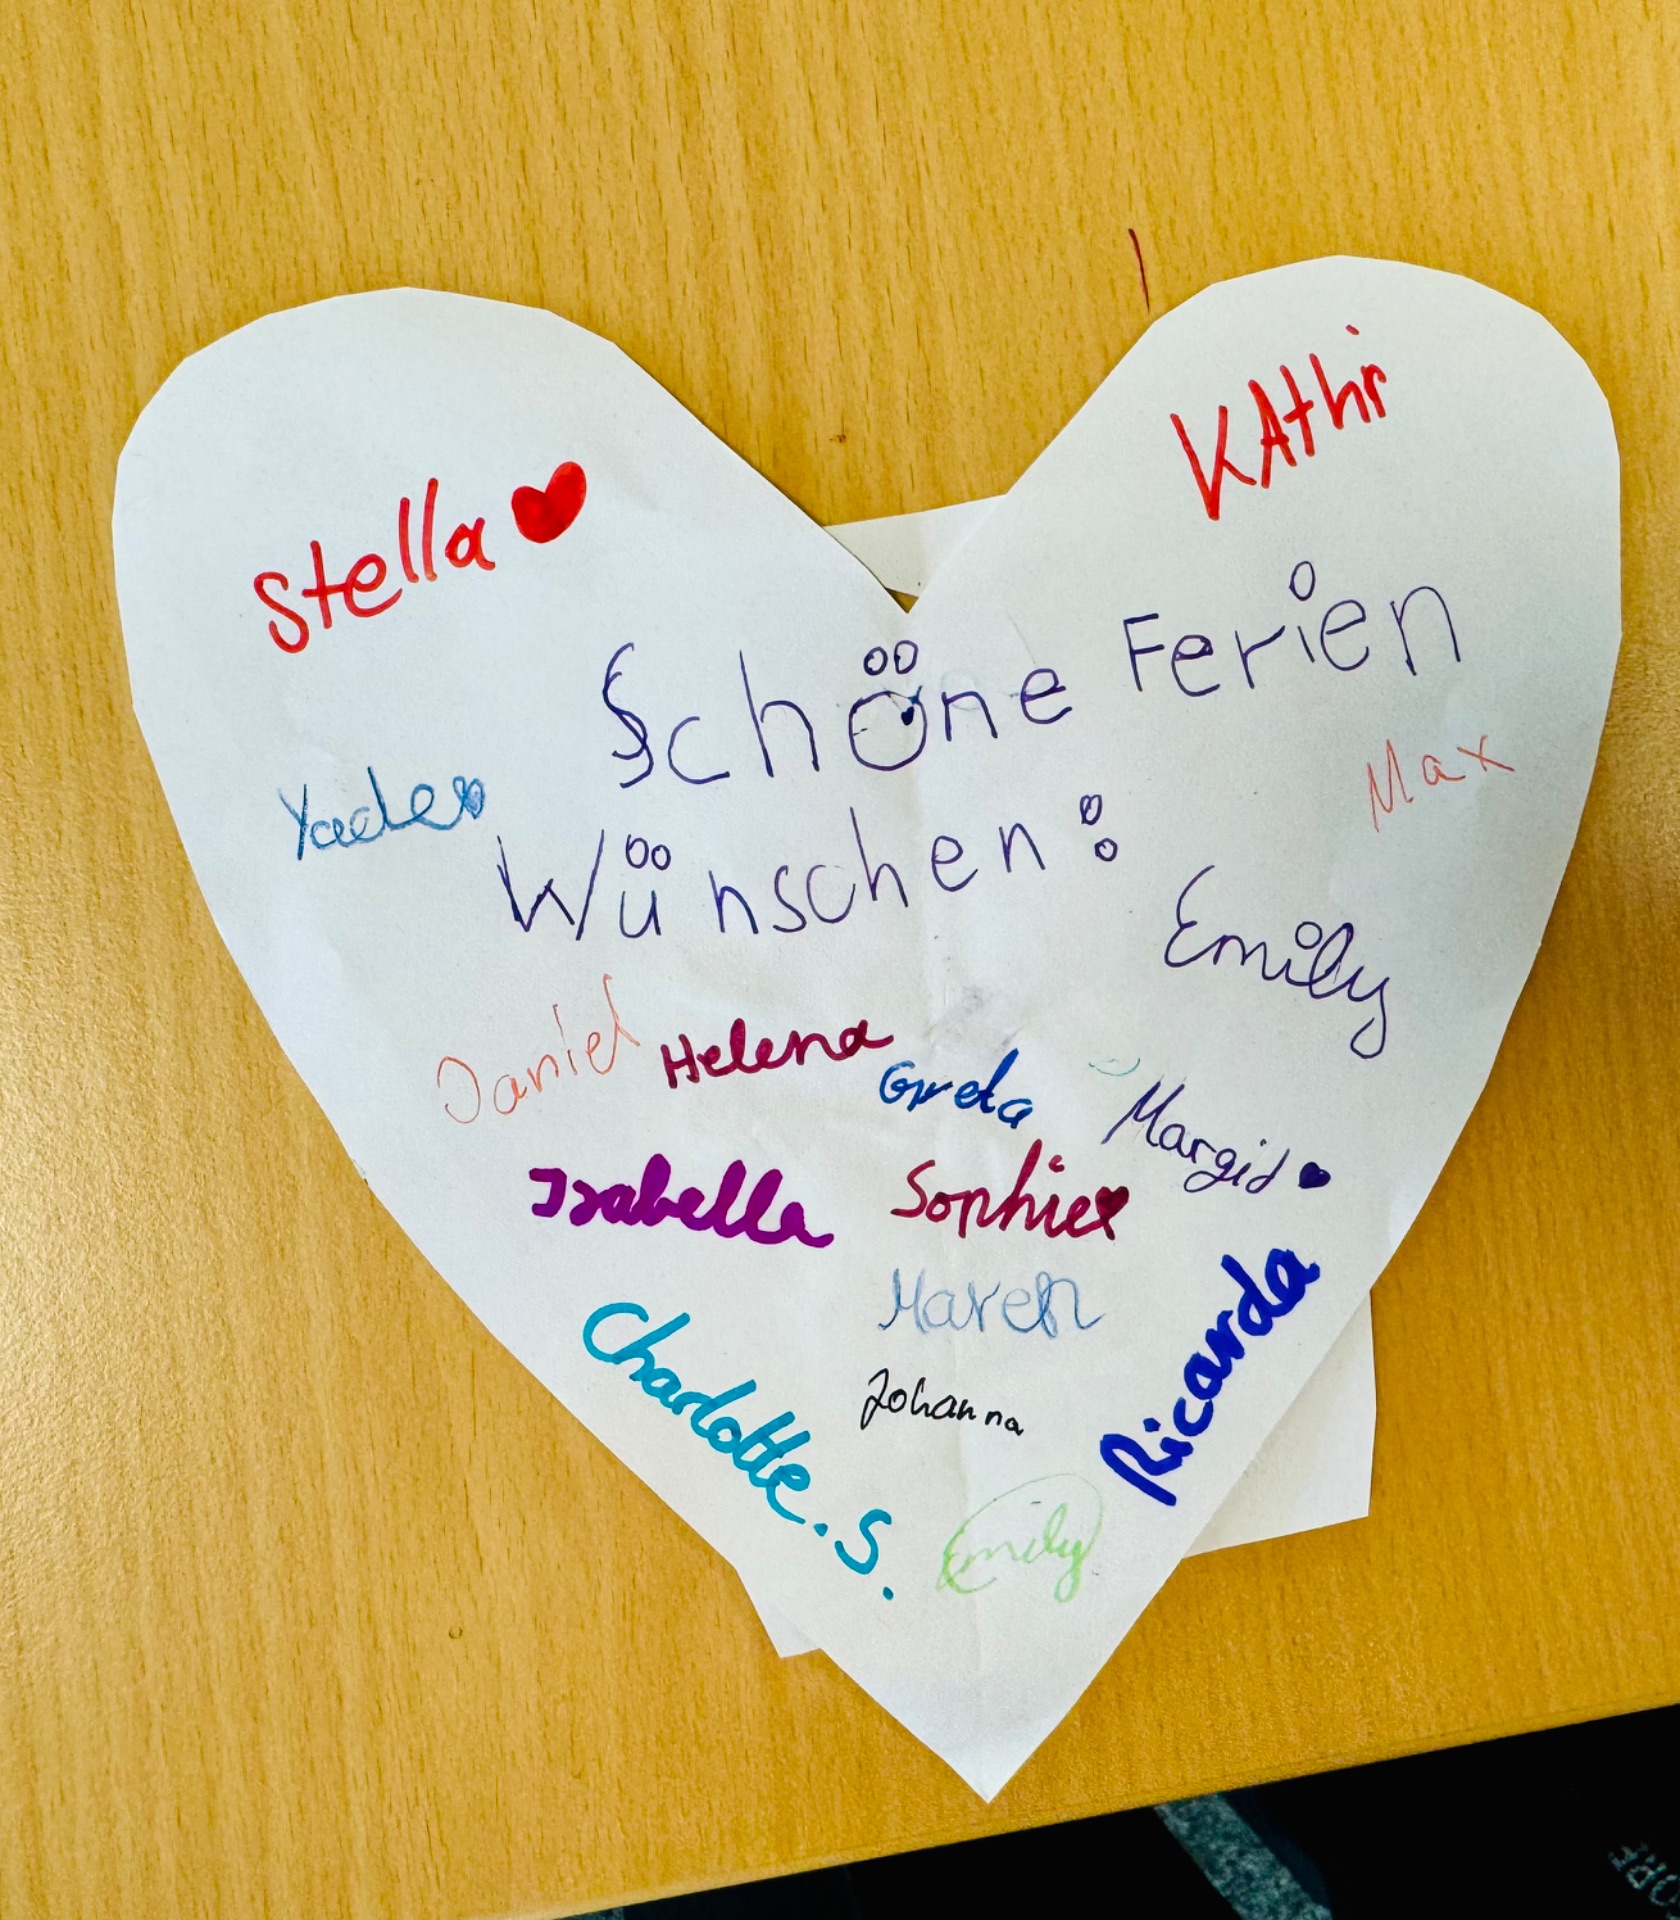 KAthi
Stella
Schöne Ferien
Wünschen:
Max
Emily
Daniel
Helena
Greta
Margid
Isabella
Sophie
Maren
Ricarda
Charlotte.S.
Johanna
Emily